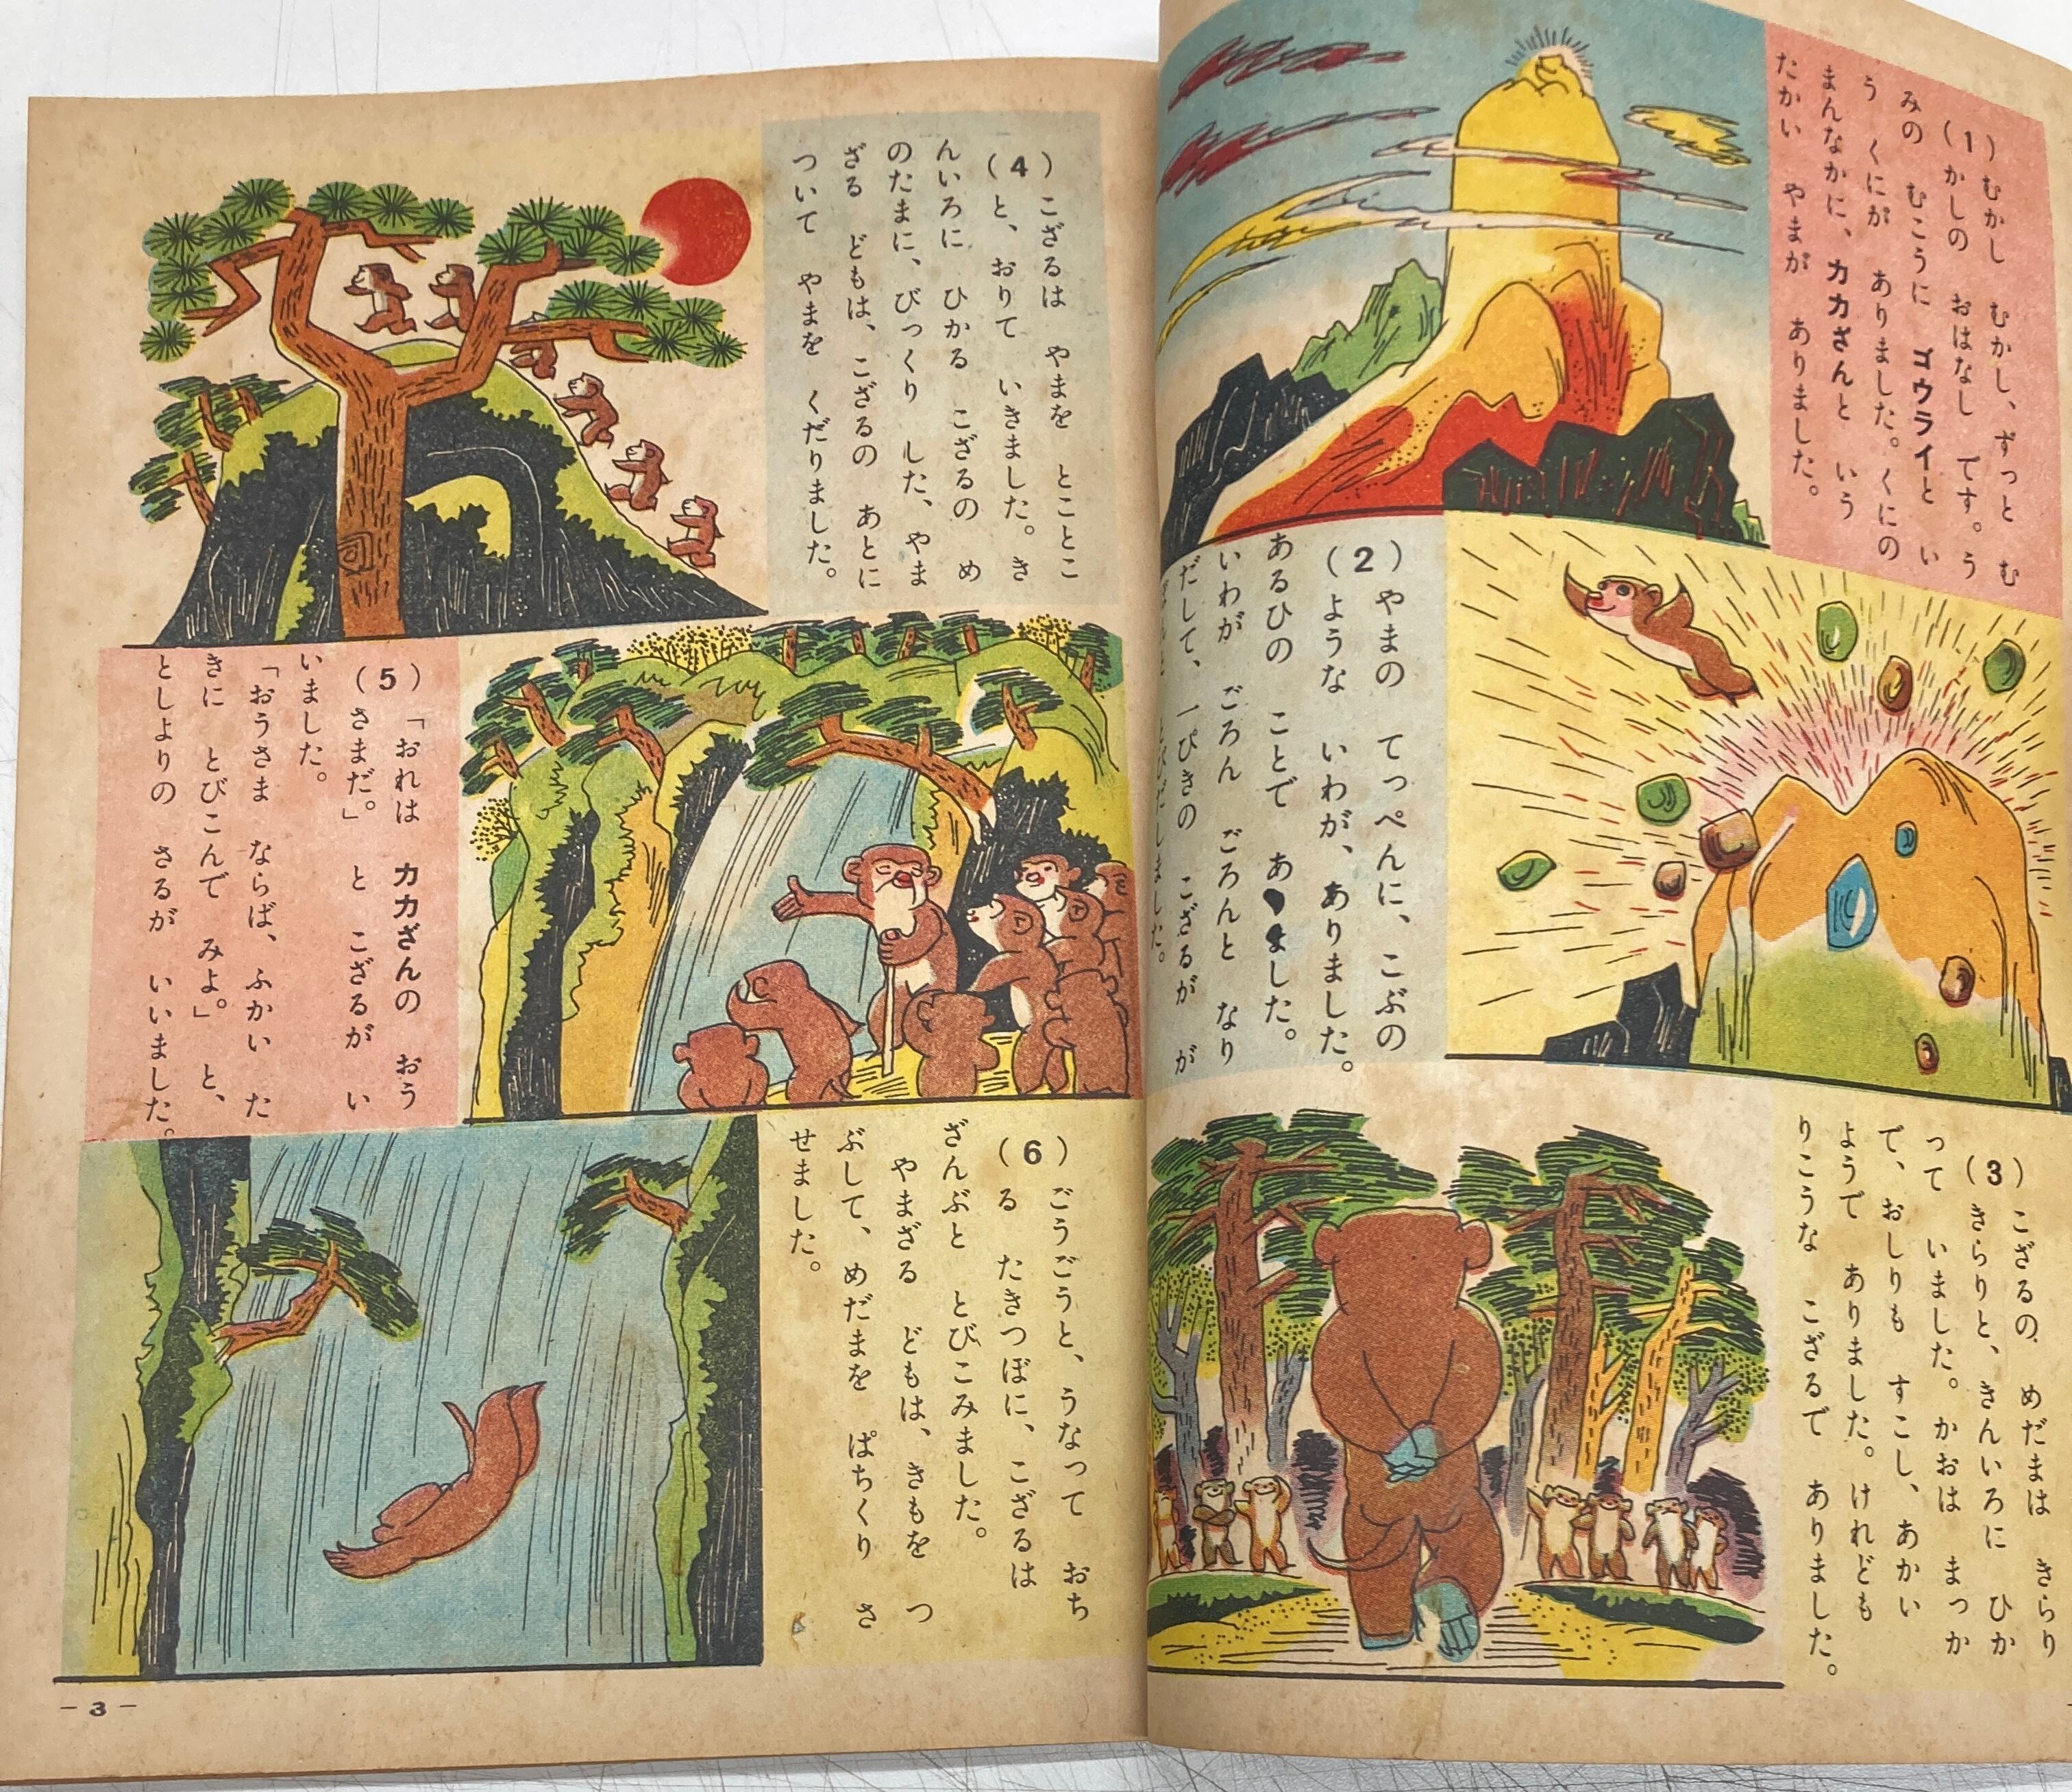 (1) むかし むかし、ずっと む
かしの おはなし です。う
みの むこうに ゴウライと い
う くにが ありました。くにの
まんなかに、カカざんと いう
たかい やまが ありました。
(2) やまの てっぺんに、こぶの
ような いわが、ありました。
あるひの ことで あ ました。
いわが ごろん ごろんと なり
だして、一ぴきの こざるが が
とびだしました。
(3) こざるの、めだまは きらり
きらりと、きんいろに ひか
って いました。かおは まっか
で、おしりも すこし、あかい
ようで ありました。けれども
りこうな こざるで ありました。
(4) こざるは やまを とことこ
と、おりて いきました。き
んいろに ひかる こざるの め
のたまに、びっくり した、やま
ざる どもは、こざるの あとに
ついて やまを くだりました。
(5) 「おれは カカざんの おう
さまだ。」と こざるが い
いました。
「おうさま ならば、ふかい た
きに とびこんで みよ。」と、
としよりの さるが いいました。
(6) ごうごうと、うなって おち
る たきつぼに、こざるは
ざんぶと とびこみました。
やまざる どもは、きもを つ
ぶして、めだまを ぱちくり さ
せました。
－3－